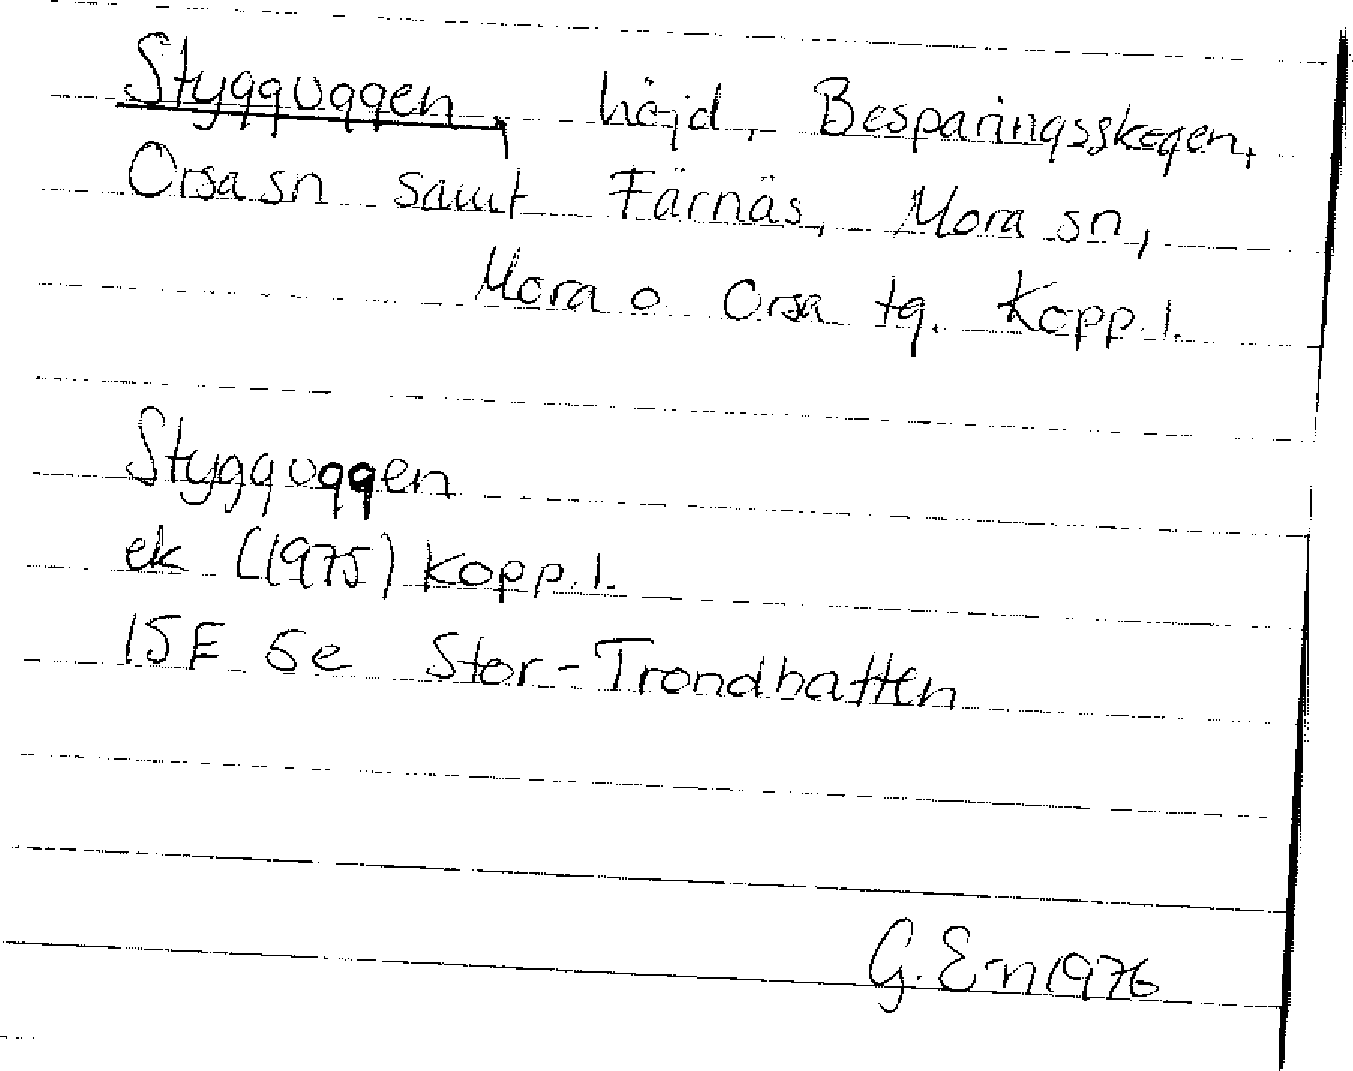 Stygguggen, höjd, Besparingsskogen,
Orsa sn samt Färnäs, Mora sn,
Mora o Orsa tg. Kopp.l.
Stygguggen
ek (1975) Kopp.l.
15E 6e Stor-Trondhatten
G. En 1976